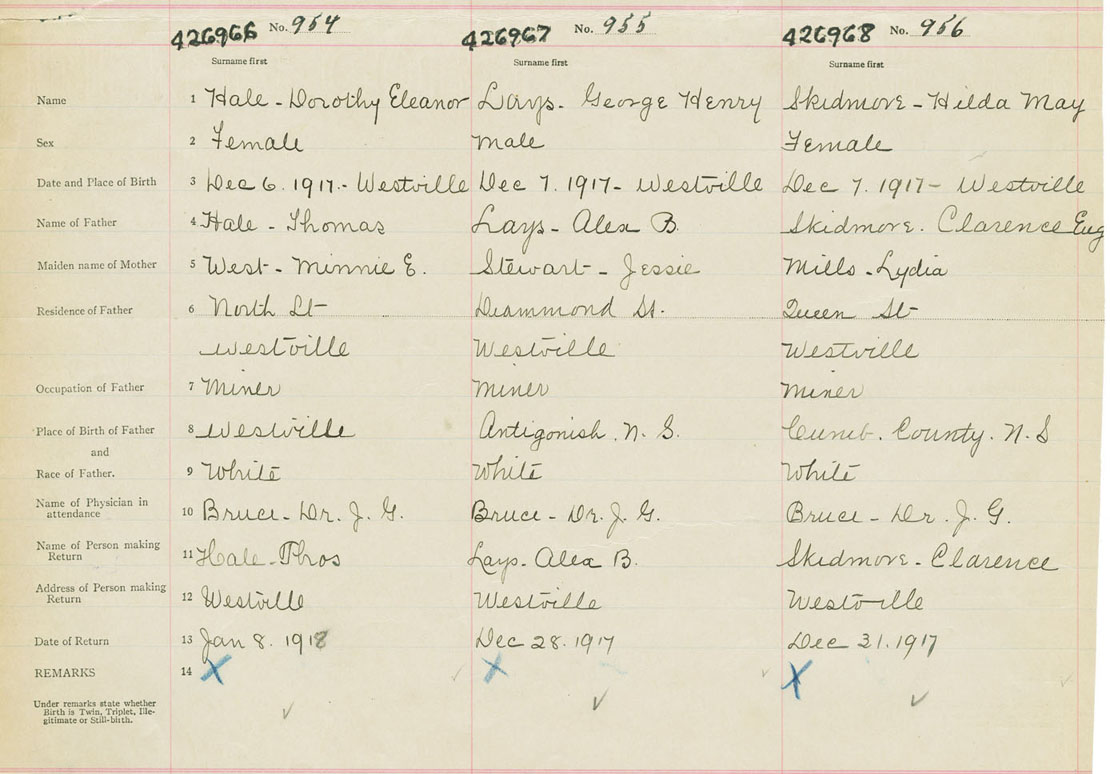 426966 No. 954 426967 No. 955 426968 No. 956
Surname first Surname first Surname first
Name 1 Hale - Dorothy Eleanor Lays - George Henry Skidmore - Hilda May
Sex 2 Female Male Female
Date and Place of Birth 3 Dec 6. 1917 - Westville Dec 7. 1917 - Westville Dec 7. 1917 - Westville
Name of Father 4 Hale - Thomas Lays - Alex B. Skidmore. Clarence Eug
Maiden name of Mother 5 West - Minnie E. Stewart - Jessie Mills - Lydia
Residence of Father 6 North St Diammond St. Queen St
Westville Westville Westville
Occupation of Father 7 Miner Miner Miner
Place of Birth of Father 8 Westville Antigonish. N. S. Cumb. County. N. S
and
Race of Father. 9 White White White
Name of Physician in
attendance 10 Bruce - Dr. J. G. Bruce - Dr. J. G. Bruce - Dr. J. G.
Name of Person making
Return 11 Hale - Thos Lays - Alex B. Skidmore - Clarence
Address of Person making
Return 12 Westville Westville Westville
Date of Return 13 Jan 8. 1918 Dec 28. 1917 Dec 31. 1917
REMARKS 14 X X X
Under remarks state whether
Birth is Twin, Triplet, Ille-
gitimate or Still-birth.